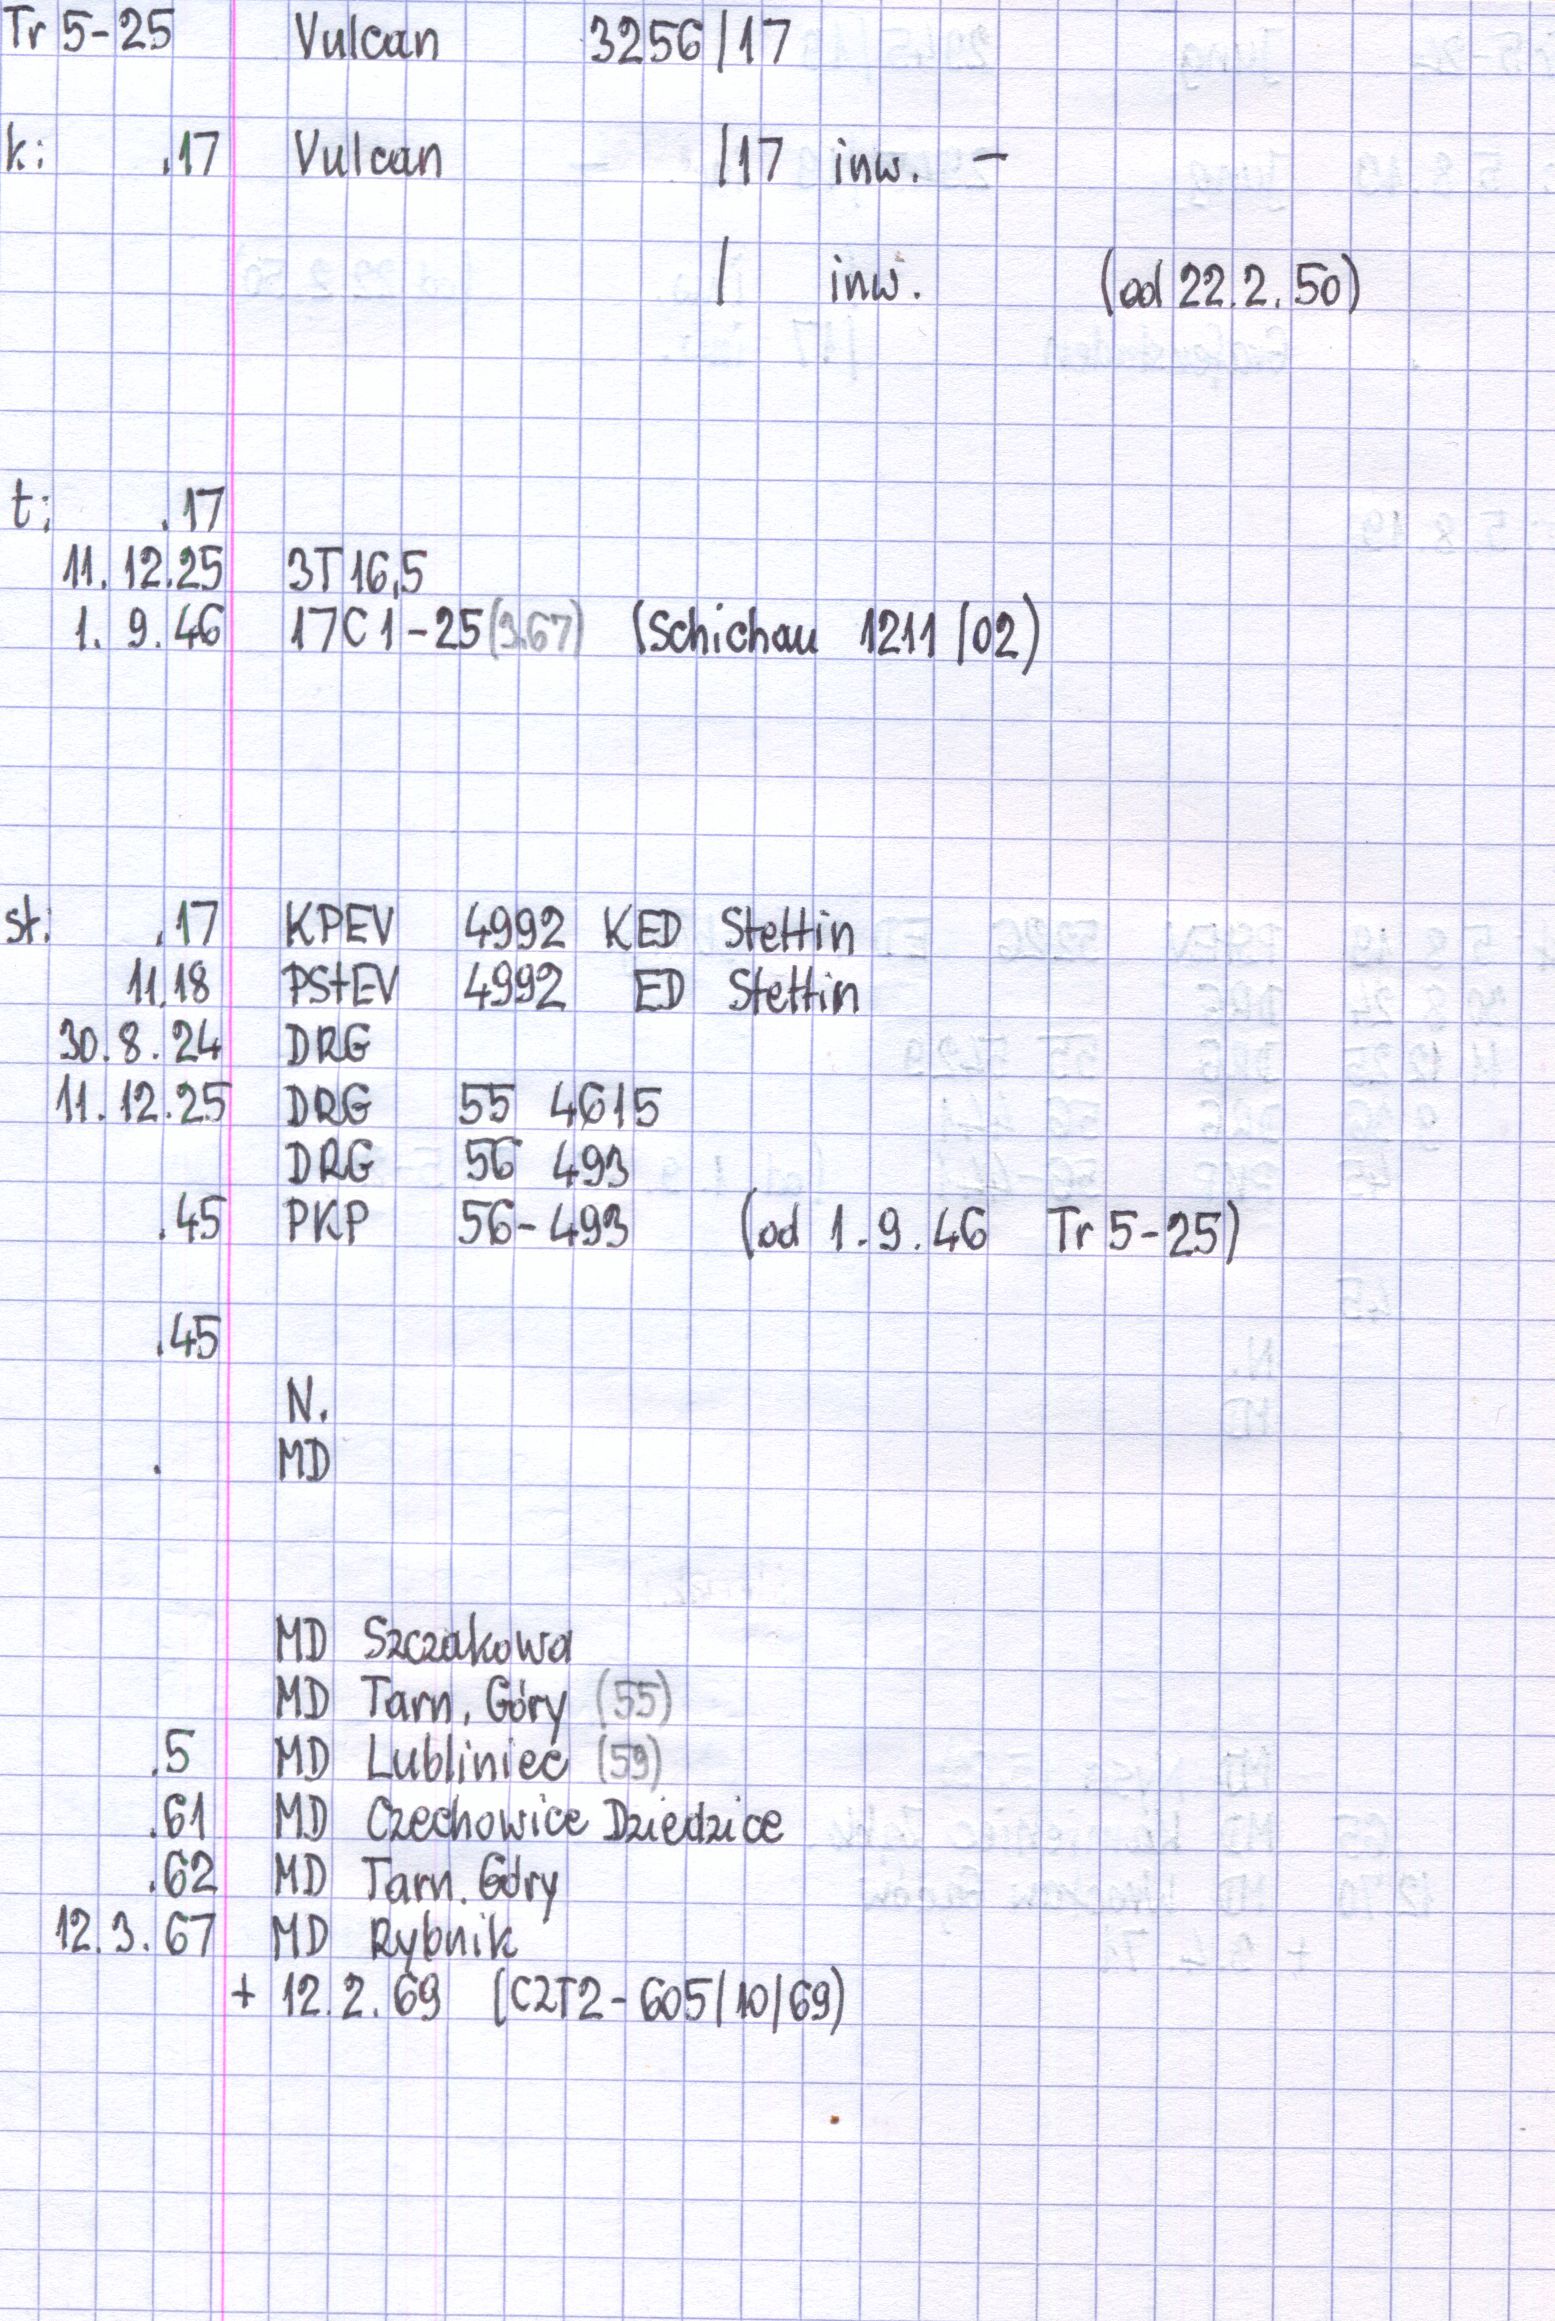 Tr 5-25 Vulcan 3256/17
k: .17 Vulcan /17 inw. -
/ inw. (od 22.2.50)
t: .17
11.12.25 3T16,5
1.9.46 17C1-25 (3.67) (Schichau 1211/02)
st: .17 KPEV 4992 KED Stettin
11.18 PStEV 4992 ED Stettin
30.8.24 DRG
11.12.25 DRG 55 4615
DRG 56 493
.45 PKP 56-493 (od 1.9.46 Tr 5-25)
.45
N.
. MD
MD Szczakowa
MD Tarn. Góry (55)
.5 MD Lubliniec (59)
.61 MD Czechowice Dziedzice
.62 MD Tarn. Góry
12.3.67 MD Rybnik
+ 12.2.69 (CZT2-605/10/69)